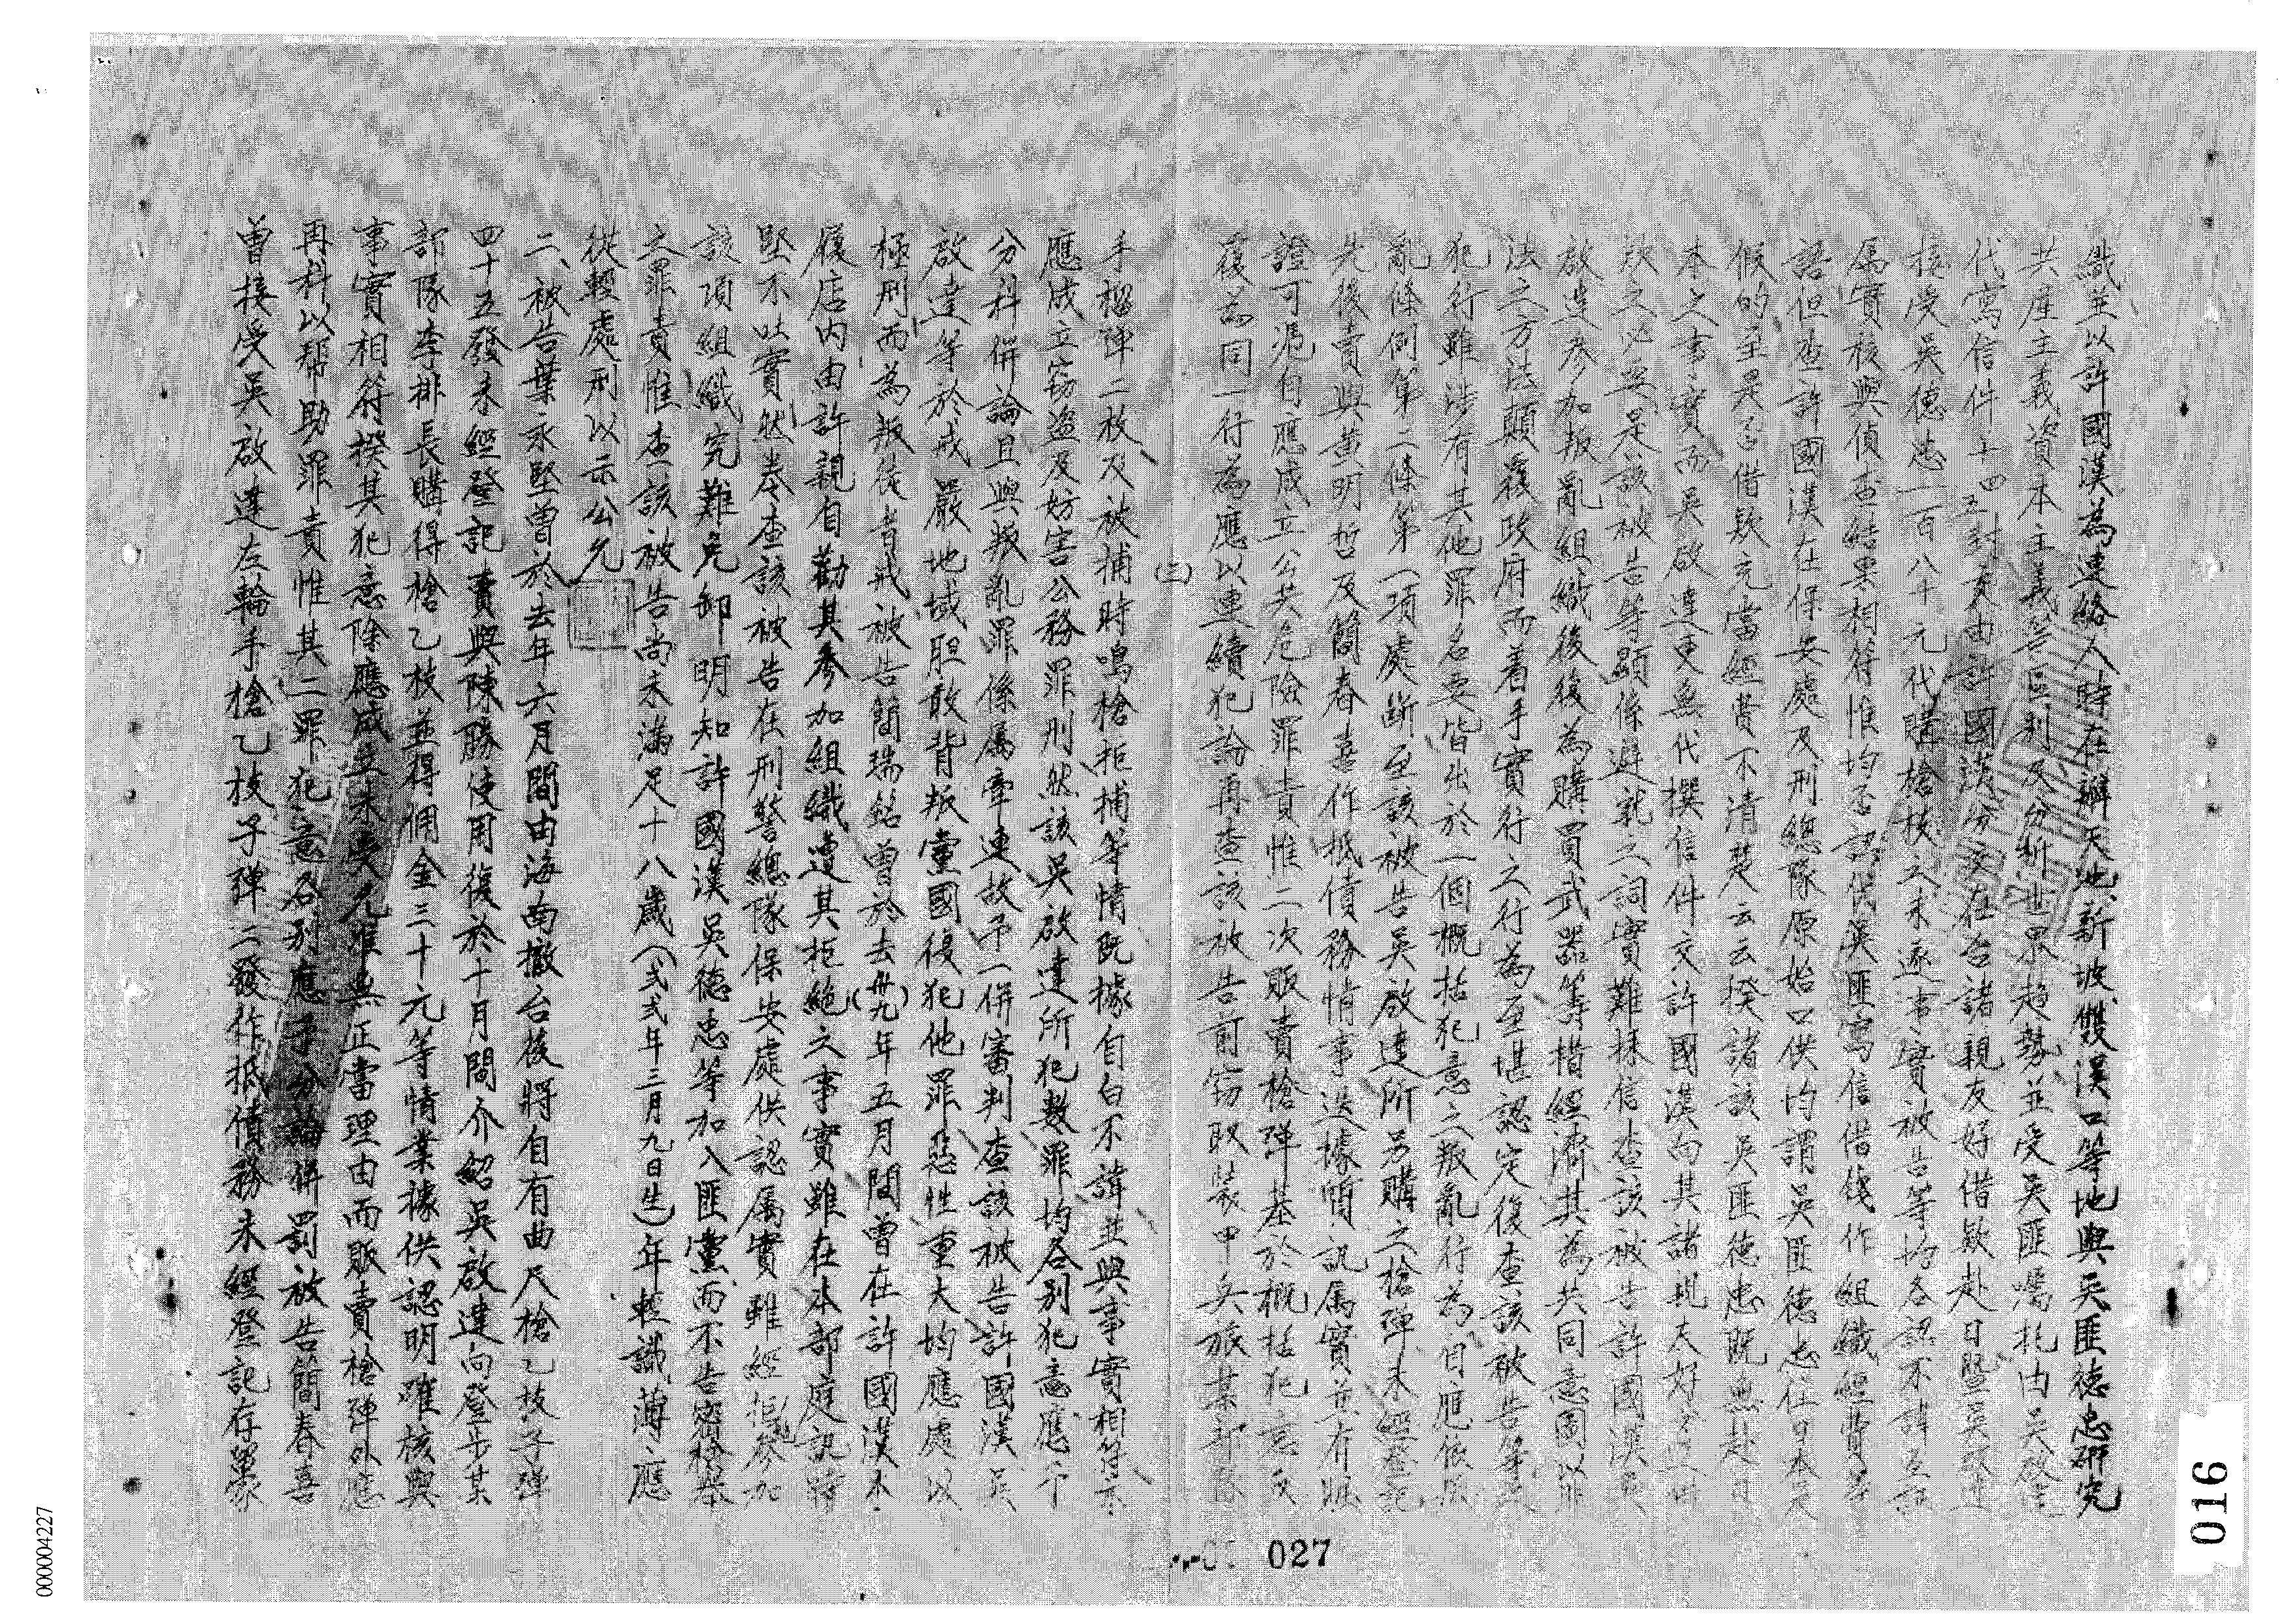 織並以許國漢為連絡人時在辦天池新坡雙溪口等地與吳匪德忠研究
共產主義資本主義等區別及分析世界趨勢並受吳匪囑托由吳啟達
代寫信件十四五封交由許國漢分交在台諸親友好借欵赴日暨吳啟達
接受吳德忠一百八十元代購槍枝之未遂事實被告等均各認不諱互証
屬實核與偵查結果相符惟均否認代吳匪寫信借錢作組織經費等
語但查許國漢在保安處及刑總隊原始口供均謂吳匪德忠在日本是
假的至是否借欵充當經費不清楚云云揆諸該吳匪德忠既無赴日
本之事實而吳啟達更無代撰信件交許國漢向其諸親友好
欵之必要是該被告等顯係避就之詞實難採信查該被告許國漢吳
啟達參加叛亂組織後後為購買武器籌措經濟其為共同意圖以非
法之方法顛覆政府而着手實行之行為至堪認定復查該被告等
犯行雖涉有其他罪名要皆出於一個概括犯意之叛亂行為自應依照
亂條例第二條第一項處斷至該被告吳啟達所另購之槍彈未經登記
先後賣與黃明哲及簡春喜作抵債務情事迭據質訊屬實並有賍
證可憑自應成立公共危險罪責惟二次販賣槍彈基於概括犯意反
復為同一行為應以連續犯論再查該被告前竊取裝甲兵旅某部隊
(三)
手榴彈二枚及被捕時鳴槍拒捕等情既據自白不諱並與事實相符亦
應成立竊盜及妨害公務罪刑然該吳啟達所犯數罪均各別犯意應予
分科併論且與叛亂罪係屬牽連故予一併審判查該被告許國漢吳
啟達等於戒嚴地域胆敢背叛黨國復犯他罪惡性重大均應處以
極刑而為叛徒者戒被告簡瑞銘曾於去(卅九)年五月間曾在許國漢木
屐店內由許親自勸其參加組織遭其拒絕之事實雖在本部庭訊時
堅不吐實然卷查該被告在刑警總隊保安處供認屬實雖經拒絕參加
該項組織究難免卸明知許國漢吳德忠等加入匪黨而不告密檢舉
之罪責惟查該被告尚未滿足十八歲(弍弍年三月九日生)年輕識薄應
從輕處刑以示公允
二、被告葉永堅曾於去年六月間由海南撤台後將自有曲尺槍乙枝子彈
四十五發未經登記賣與陳勝使用復於十月間介紹吳啟達向登步某
部隊李排長購得槍乙枝並得佣金三十元等情業據供認明確核與
事實相符揆其犯意除應成立未受允准無正當理由而販賣槍彈外應
再科以幫助罪責惟其二罪犯意各別應予分論併罰被告簡春喜
曾接受吳啟達左輪手槍乙枝子彈二發作抵債務未經登記存槖
027
016
000004227